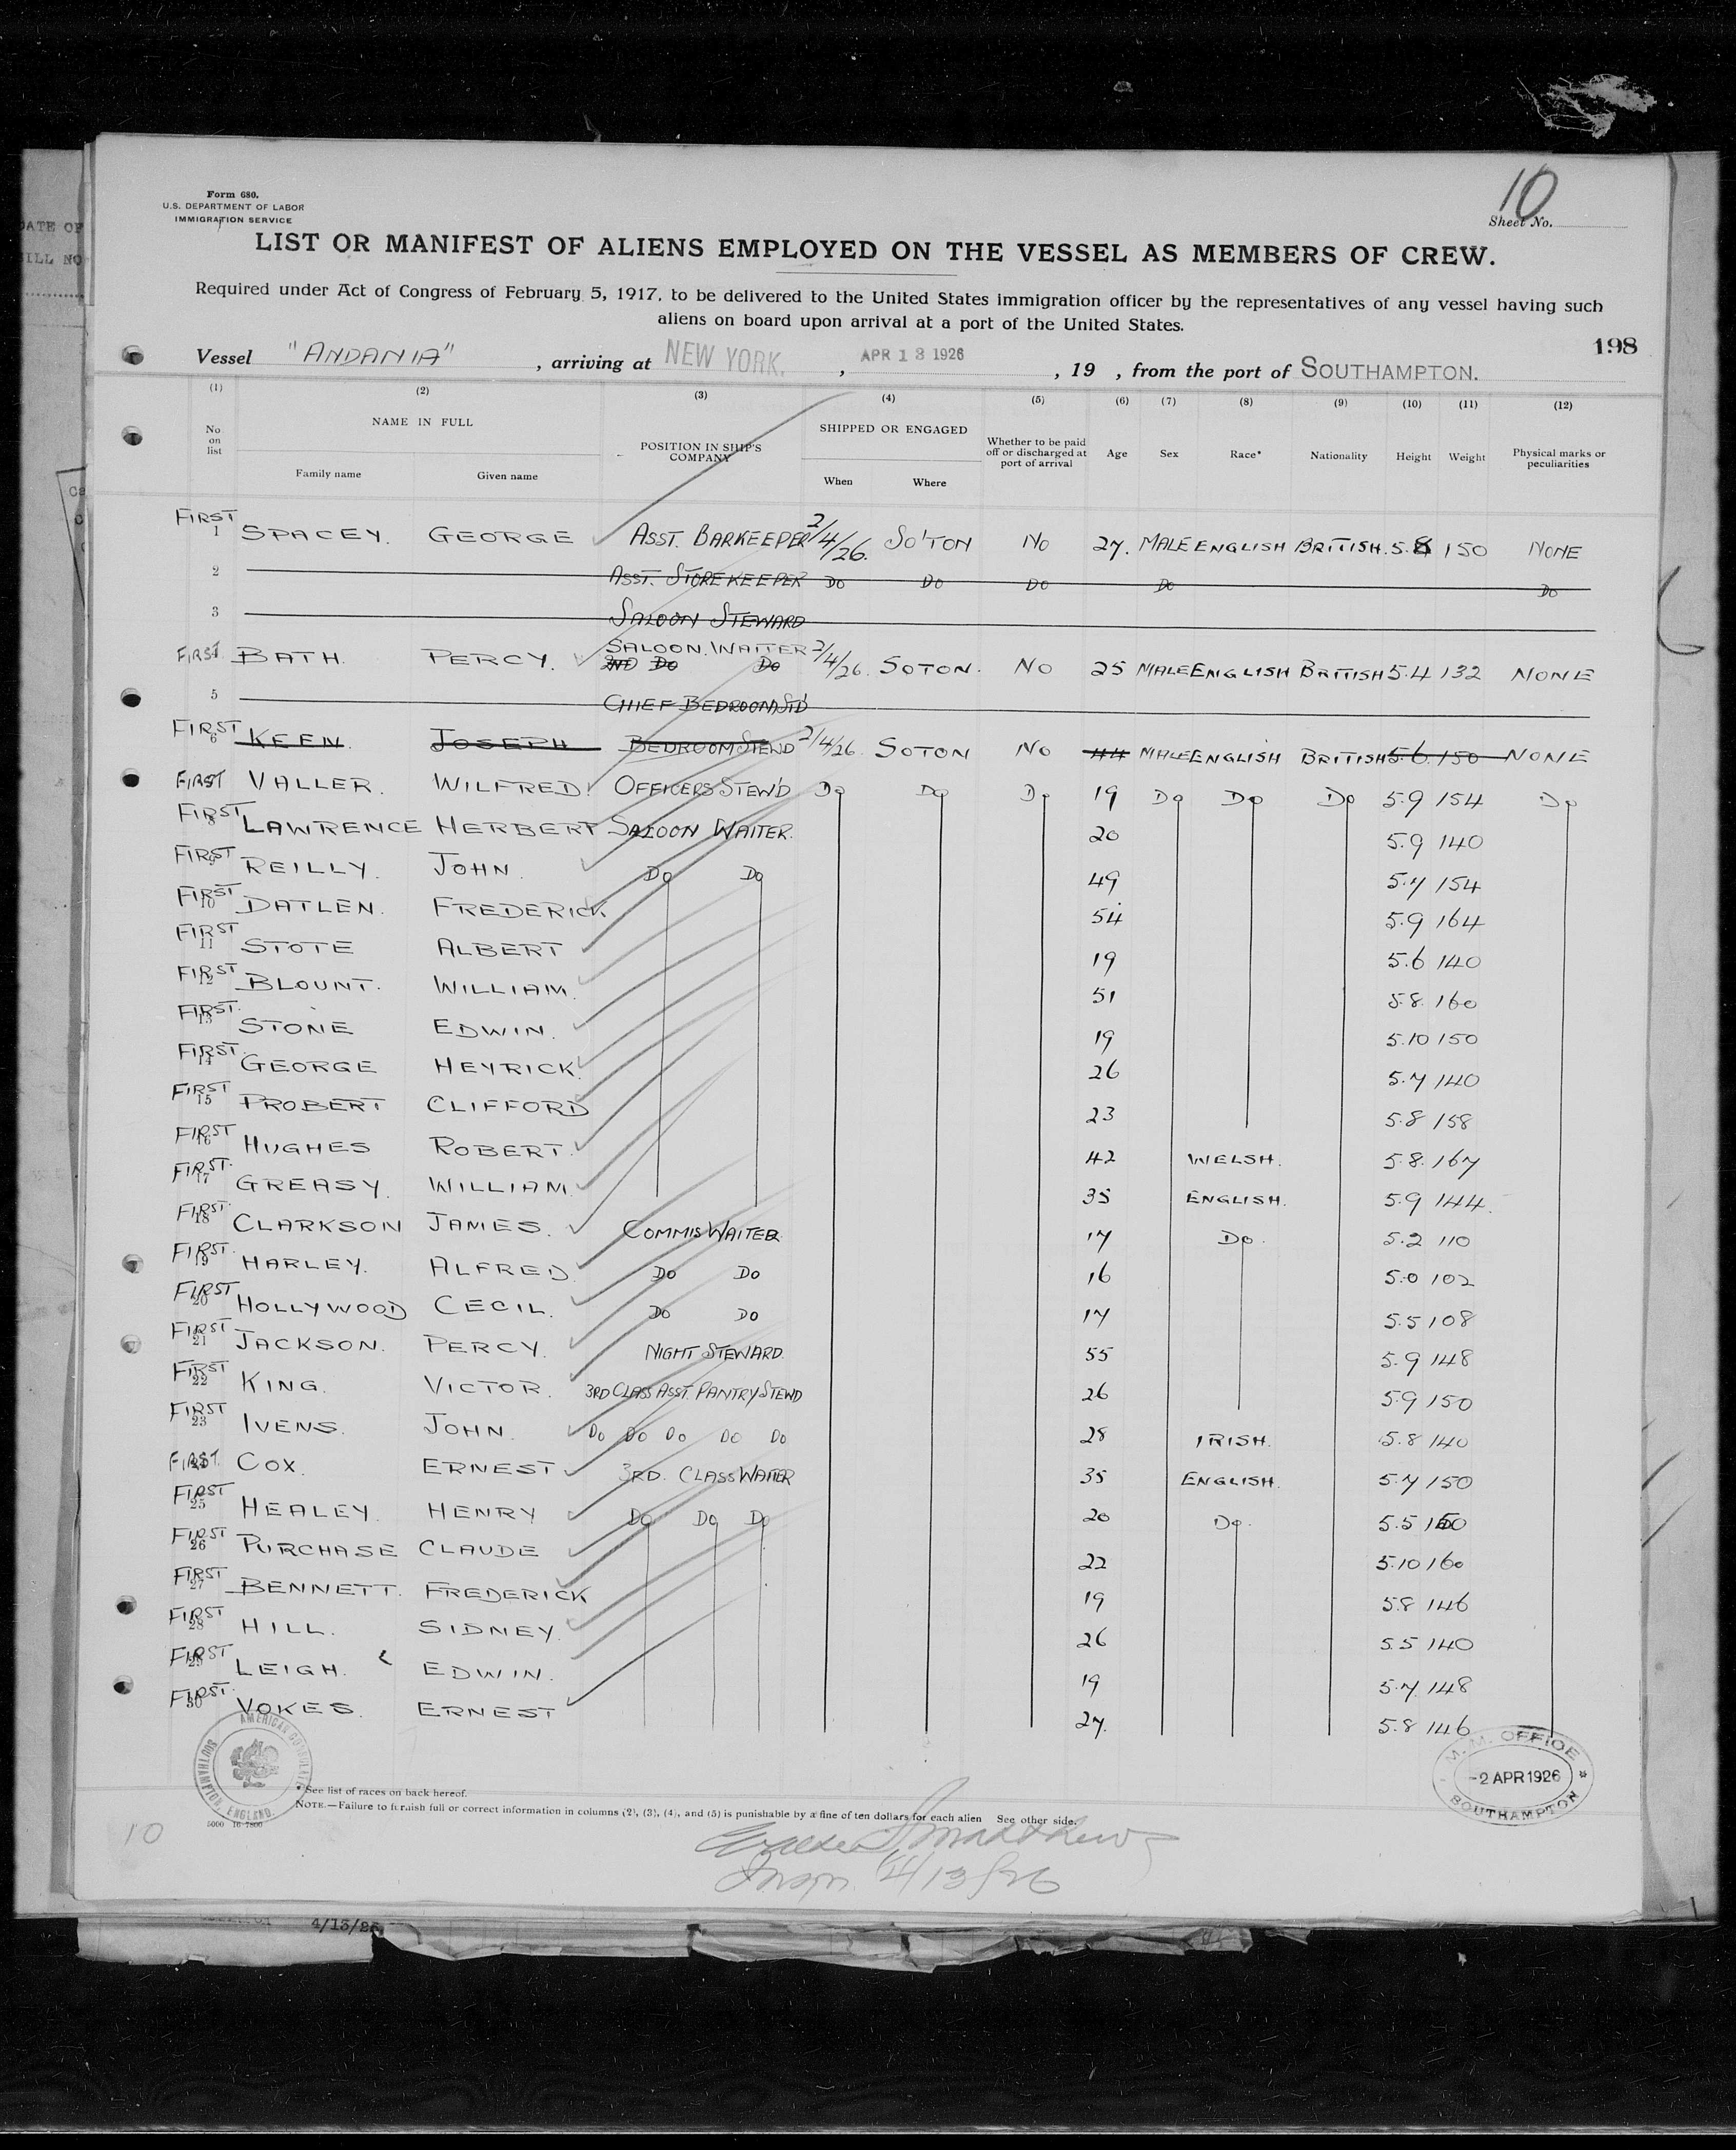 DATE OF
BILL NO
Form 680.
U.S. DEPARTMENT OF LABOR
IMMIGRATION SERVICE
10
Sheet No.
LIST OR MANIFEST OF ALIENS EMPLOYED ON THE VESSEL AS MEMBERS OF CREW.
Required under Act of Congress of February 5, 1917, to be delivered to the United States immigration officer by the representatives of any vessel having such
aliens on board upon arrival at a port of the United States.
198
Vessel "ANDANIA", arriving at NEW YORK., APR 13 1926, 19 , from the port of SOUTHAMPTON.
(1) (2) (3) (4) (5) (6) (7) (8) (9) (10) (11) (12)
No on list NAME IN FULL Family name Given name POSITION IN SHIP'S COMPANY SHIPPED OR ENGAGED When Where Whether to be paid off or discharged at port of arrival Age Sex Race* Nationality Height Weight Physical marks or peculiarities
FIRST 1 SPACEY. GEORGE ASST. BARKEEPER 2/4/26. SO'TON NO 27. MALE ENGLISH BRITISH. 5.8 150 NONE
2 ASST. STOREKEEPER DO DO DO DO DO
3 SALOON STEWARD
FIRST BATH. PERCY. SALOON. WAITER 2ND DO DO 2/4/26. SOTON. NO 25 MALE ENGLISH BRITISH 5.4 132 NONE
5 CHIEF BEDROOM STD
FIRST 6 KEEN. JOSEPH BEDROOM STEWD 2/4/26. SOTON NO 44 MALE ENGLISH BRITISH 5.6. 150 NONE
FIRST VALLER. WILFRED. OFFICERS STEW'D DO DO DO 19 DO DO DO 5.9 154 DO
FIRST 8 LAWRENCE HERBERT SALOON WAITER. 20 5.9 140
FIRST 9 REILLY. JOHN. DO DO 49 5.7 154
FIRST 10 DATLEN. FREDERICK 54 5.9 164
FIRST 11 STOTE ALBERT 19 5.6 140
FIRST 12 BLOUNT. WILLIAM. 51 5.8. 160
FIRST. 13 STONE EDWIN. 19 5.10 150
FIRST. 14 GEORGE HEYRICK. 26 5.7 140
FIRST 15 PROBERT CLIFFORD 23 5.8 158
FIRST 16 HUGHES ROBERT. 42 WELSH. 5.8. 167
FIRST. 17 GREASY. WILLIAM. 35 ENGLISH. 5.9 144.
FIRST. 18 CLARKSON JAMES. COMMIS WAITER 17 DO. 5.2 110
FIRST. 19 HARLEY. ALFRED. DO DO 16 5.0 102
FIRST 20 HOLLYWOOD CECIL. DO DO 17 5.5 108
FIRST 21 JACKSON. PERCY. NIGHT STEWARD. 55 5.9 148
FIRST 22 KING. VICTOR. 3RD CLASS ASST. PANTRY STEWD 26 5.9 150
FIRST 23 IVENS. JOHN. DO DO DO DO DO 28 IRISH. 5.8 140
FIRST. COX. ERNEST 3RD. CLASS WAITER 35 ENGLISH. 5.7 150
FIRST 25 HEALEY. HENRY DO DO DO 20 DO. 5.5 150
FIRST 26 PURCHASE CLAUDE 22 5.10 160
FIRST 27 BENNETT. FREDERICK 19 5.8 146
FIRST 28 HILL. SIDNEY. 26 5.5 140
FIRST 29 LEIGH. EDWIN. 19 5.7. 148
FIRST. 30 VOKES. ERNEST 27. 5.8 146
AMERICAN CONSULATE SOUTHAMPTON, ENGLAND.
M.M. OFFICE
-2 APR 1926
SOUTHAMPTON
* See list of races on back hereof.
NOTE.—Failure to furnish full or correct information in columns (2), (3), (4), and (5) is punishable by a fine of ten dollars for each alien See other side.
10
Matthews
4/13/26
4/13/26